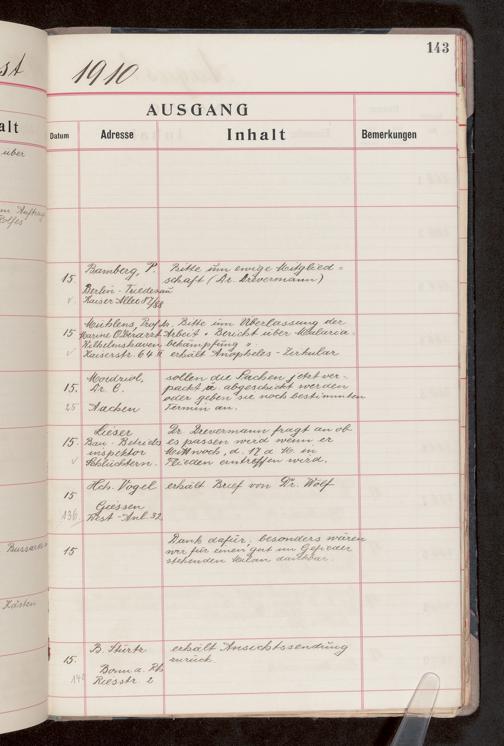 143
1910
AUSGANG
Datum Adresse Inhalt Bemerkungen
st
alt
über
im Auftrag
15. Bamberg, P. Bitte um ewige Mitglied=
schaft (Dr. Drevermann)
Berlin-Friedenau
Kaiser Allee 87/88
15 Mühlens, Prof. Dr. Bitte um Überlassung der
Marine Oberarzt Arbeit "Bericht über Malaria-
Wilhelmshaven bekämpfung".
Kaiserstr. 64 II erhält Anopheles-Zirkular
15. Moedrwl, sollen die Sachen jetzt ver-
Dr. C. packt u. abgeschickt werden
oder geben sie noch bestimmten
25 Aachen Termin an.
Lieser Dr. Drevermann fragt an ob
15. Bau-Betriebs es passen wird wenn er
inspektor Mittwoch, d. 17. d. M. in
Schlüchtern. Flieden eintreffen wird.
15 Hch. Vogel erhält Brief von Dr. Wolf
Giessen
136 West-Anl. 32
15 Dank dafür, besonders wären
wir für einen gut im Gefieder
stehenden Milan dankbar.
Bussard
Kästen
15. B. Stürtz erhält Ansichtssendung
zurück.
Bonn a. Rh.
14 Riesstr. 2